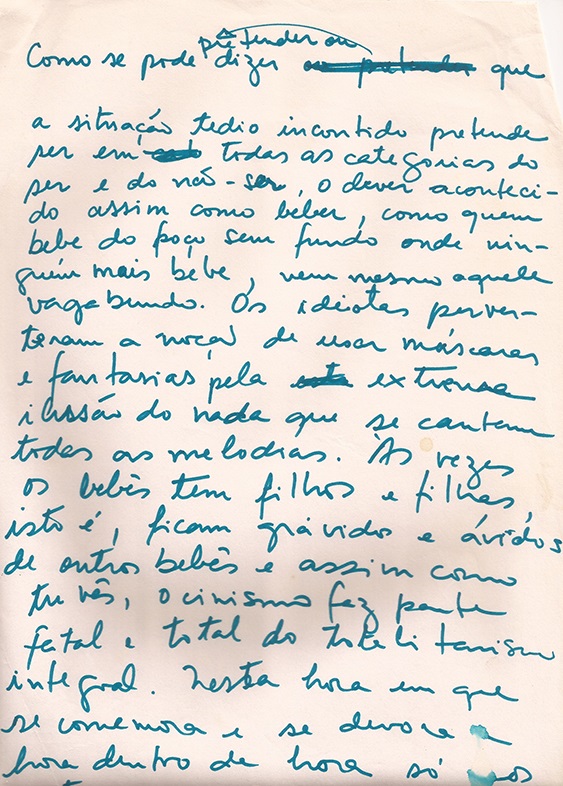 pretender ou
Como se pode dizer ou pretender que
a situação tedio incontido pretende
ser em todas as categorias do
ser e do não-ser, o dever aconteci-
do assim como beber, como quem
bebe do poço sem fundo onde nin-
guém mais bebe, nem mesmo aquele
vagabundo. Os idiotas perver-
teram a noção de usar máscaras
e fantasias pela extrema
ilusão do nada que se cantam
todas as melodias. Às vezes
os bebês tem filhos e filhas,
isto é, ficam grávidos e ávidos
de outros bebês e assim como
tu vês, o cinismo faz parte
fatal e total do totalitarismo
integral. Nesta hora em que
se comemora e se devora a
hora dentro de hora só